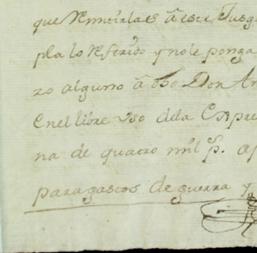 que remoirlas â este Jusg
pla lo referido y no le ponga
zo alguno â dho Don An
en el libre uso de la Expre
na de quatro mil p.^s ap
para gastos de guerra y